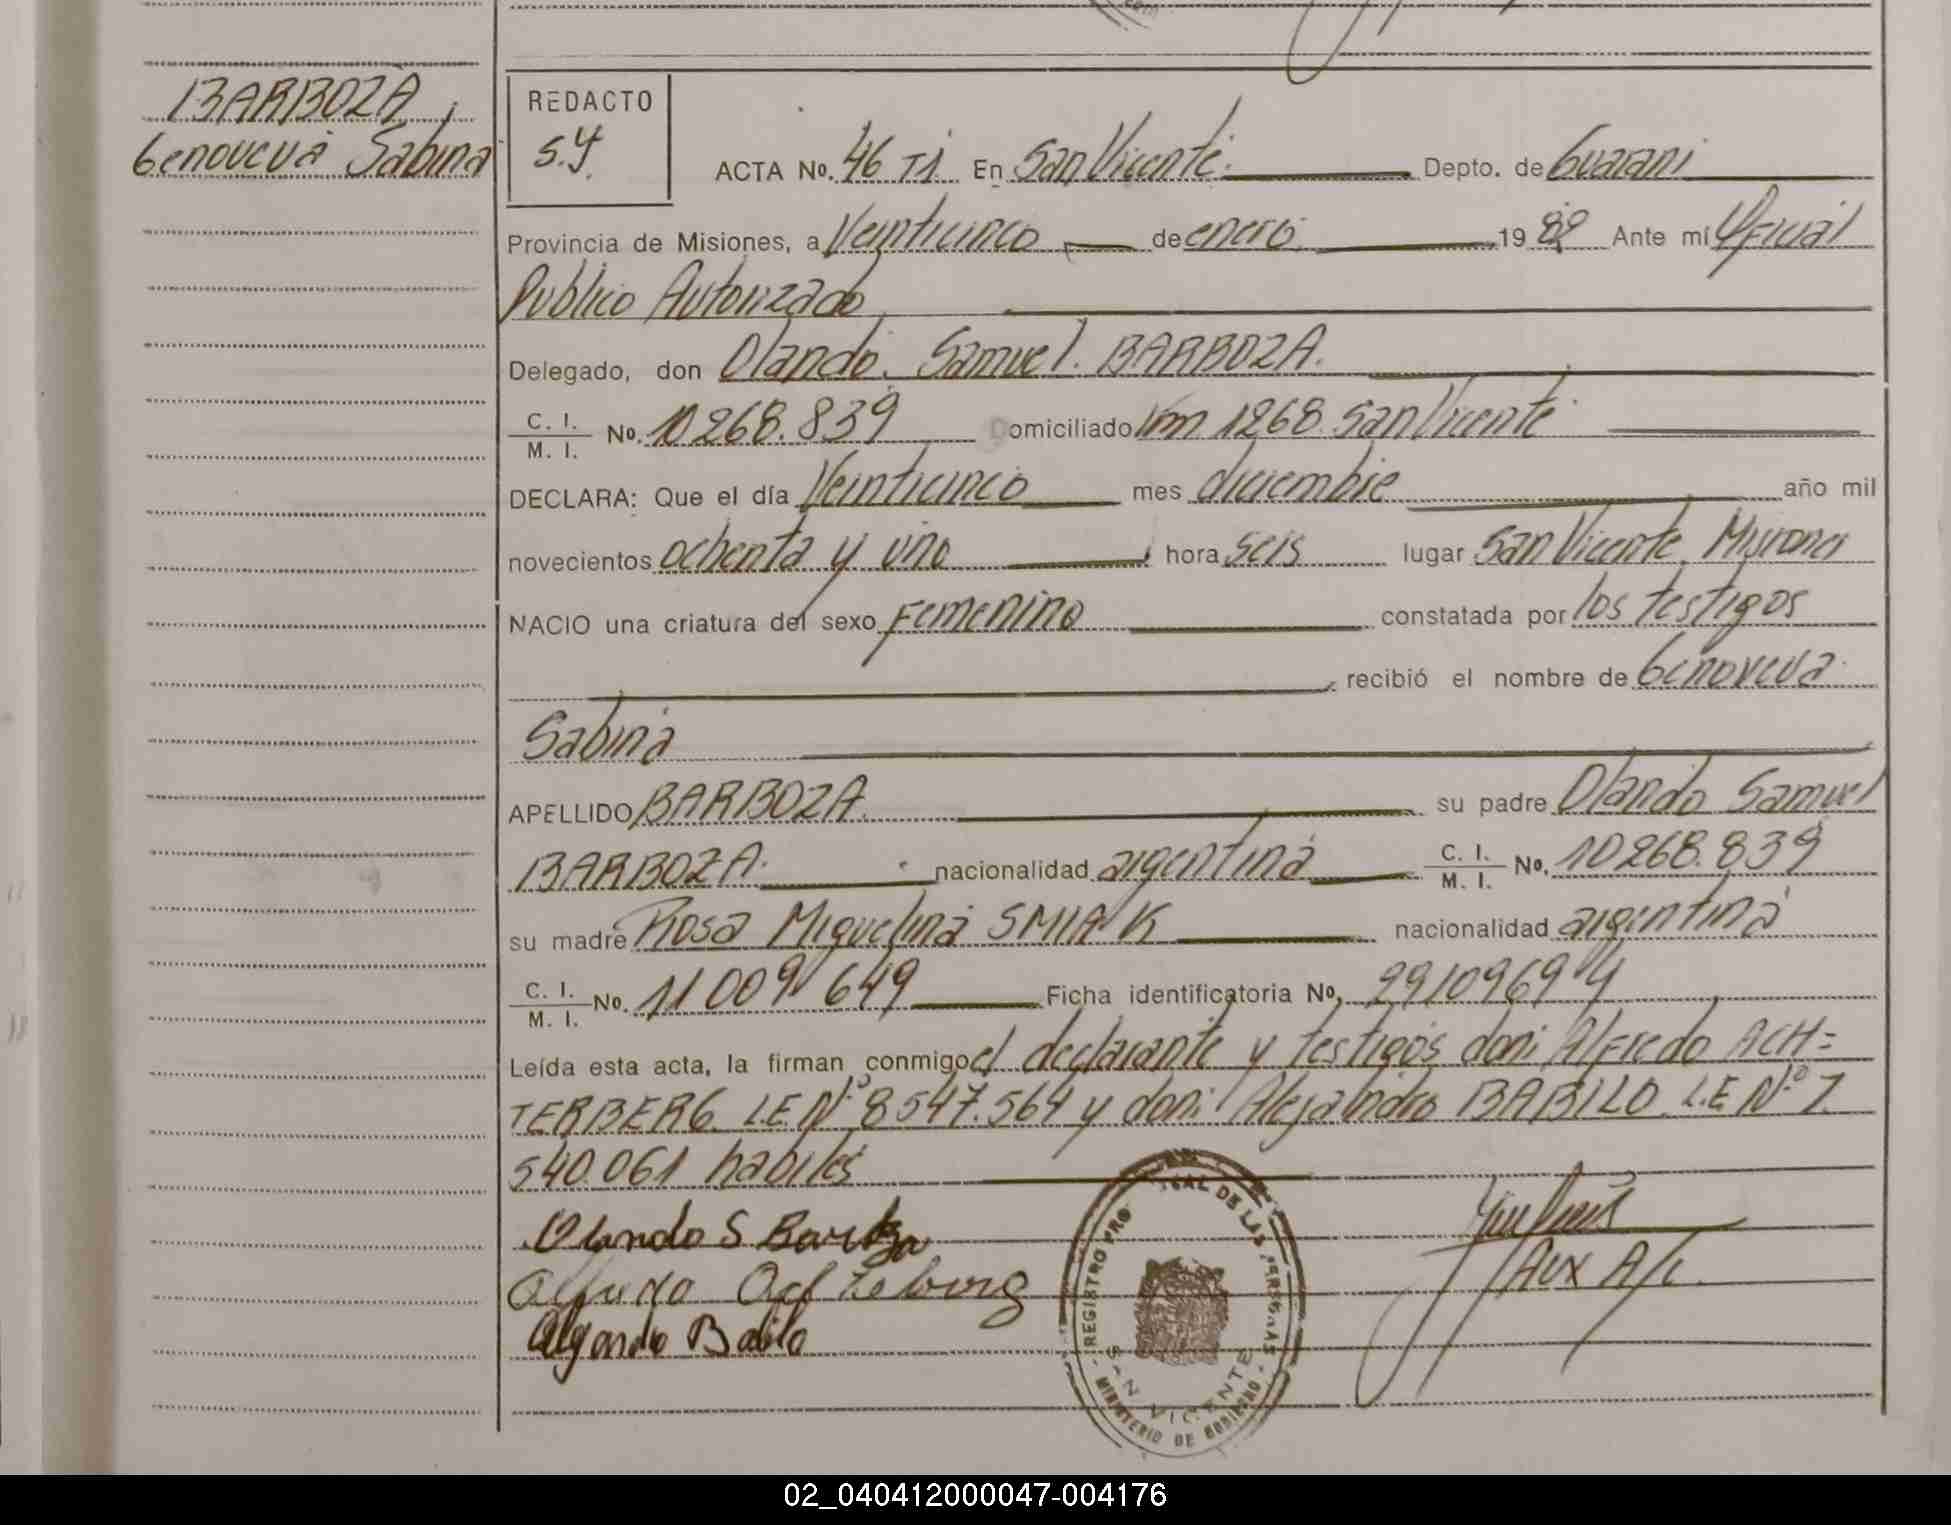 BARBOZA,
Genoveva Sabina
REDACTO
S.Y.
ACTA No. 46 T1 En San Vicente. Depto. de Guarani
Provincia de Misiones, a Veinticinco de enero 1982 Ante mí Oficial
Publico Autorizado
Delegado, don Olando. Samuel. BARBOZA.
C. I.
M. I. No. 10 268.839 Domiciliado Km 1268 San Vicente
DECLARA: Que el día Veinticinco mes diciembre año mil
novecientos ochenta y uno hora seis lugar San Vicente, Misiones
NACIO una criatura del sexo Femenino constatada por los testigos
, recibió el nombre de Genoveva
Sabina
APELLIDO BARBOZA. su padre Olando Samuel
BARBOZA. nacionalidad argentina C. I.
M. I. No. 10268.839
su madre Rosa Miguelina SMIAK nacionalidad argentina
C. I.
M. I. No. 11 009 649 Ficha identificatoria No,
Leída esta acta, la firman conmigo el declarante y testigos don: Alfredo ACH=
TERBERG. L.E. Nº 8547.564 y don: Alejandro BABILO. L.E Nº 7.
540.061 habiles
Olando S Barboza
Alejandro Babilo
AUX A/C.
REGISTRO PRO CIAL DE LAS PERSONAS
SAN VICENTE
- MINISTERIO DE GOBIERNO -
02_040412000047-004176